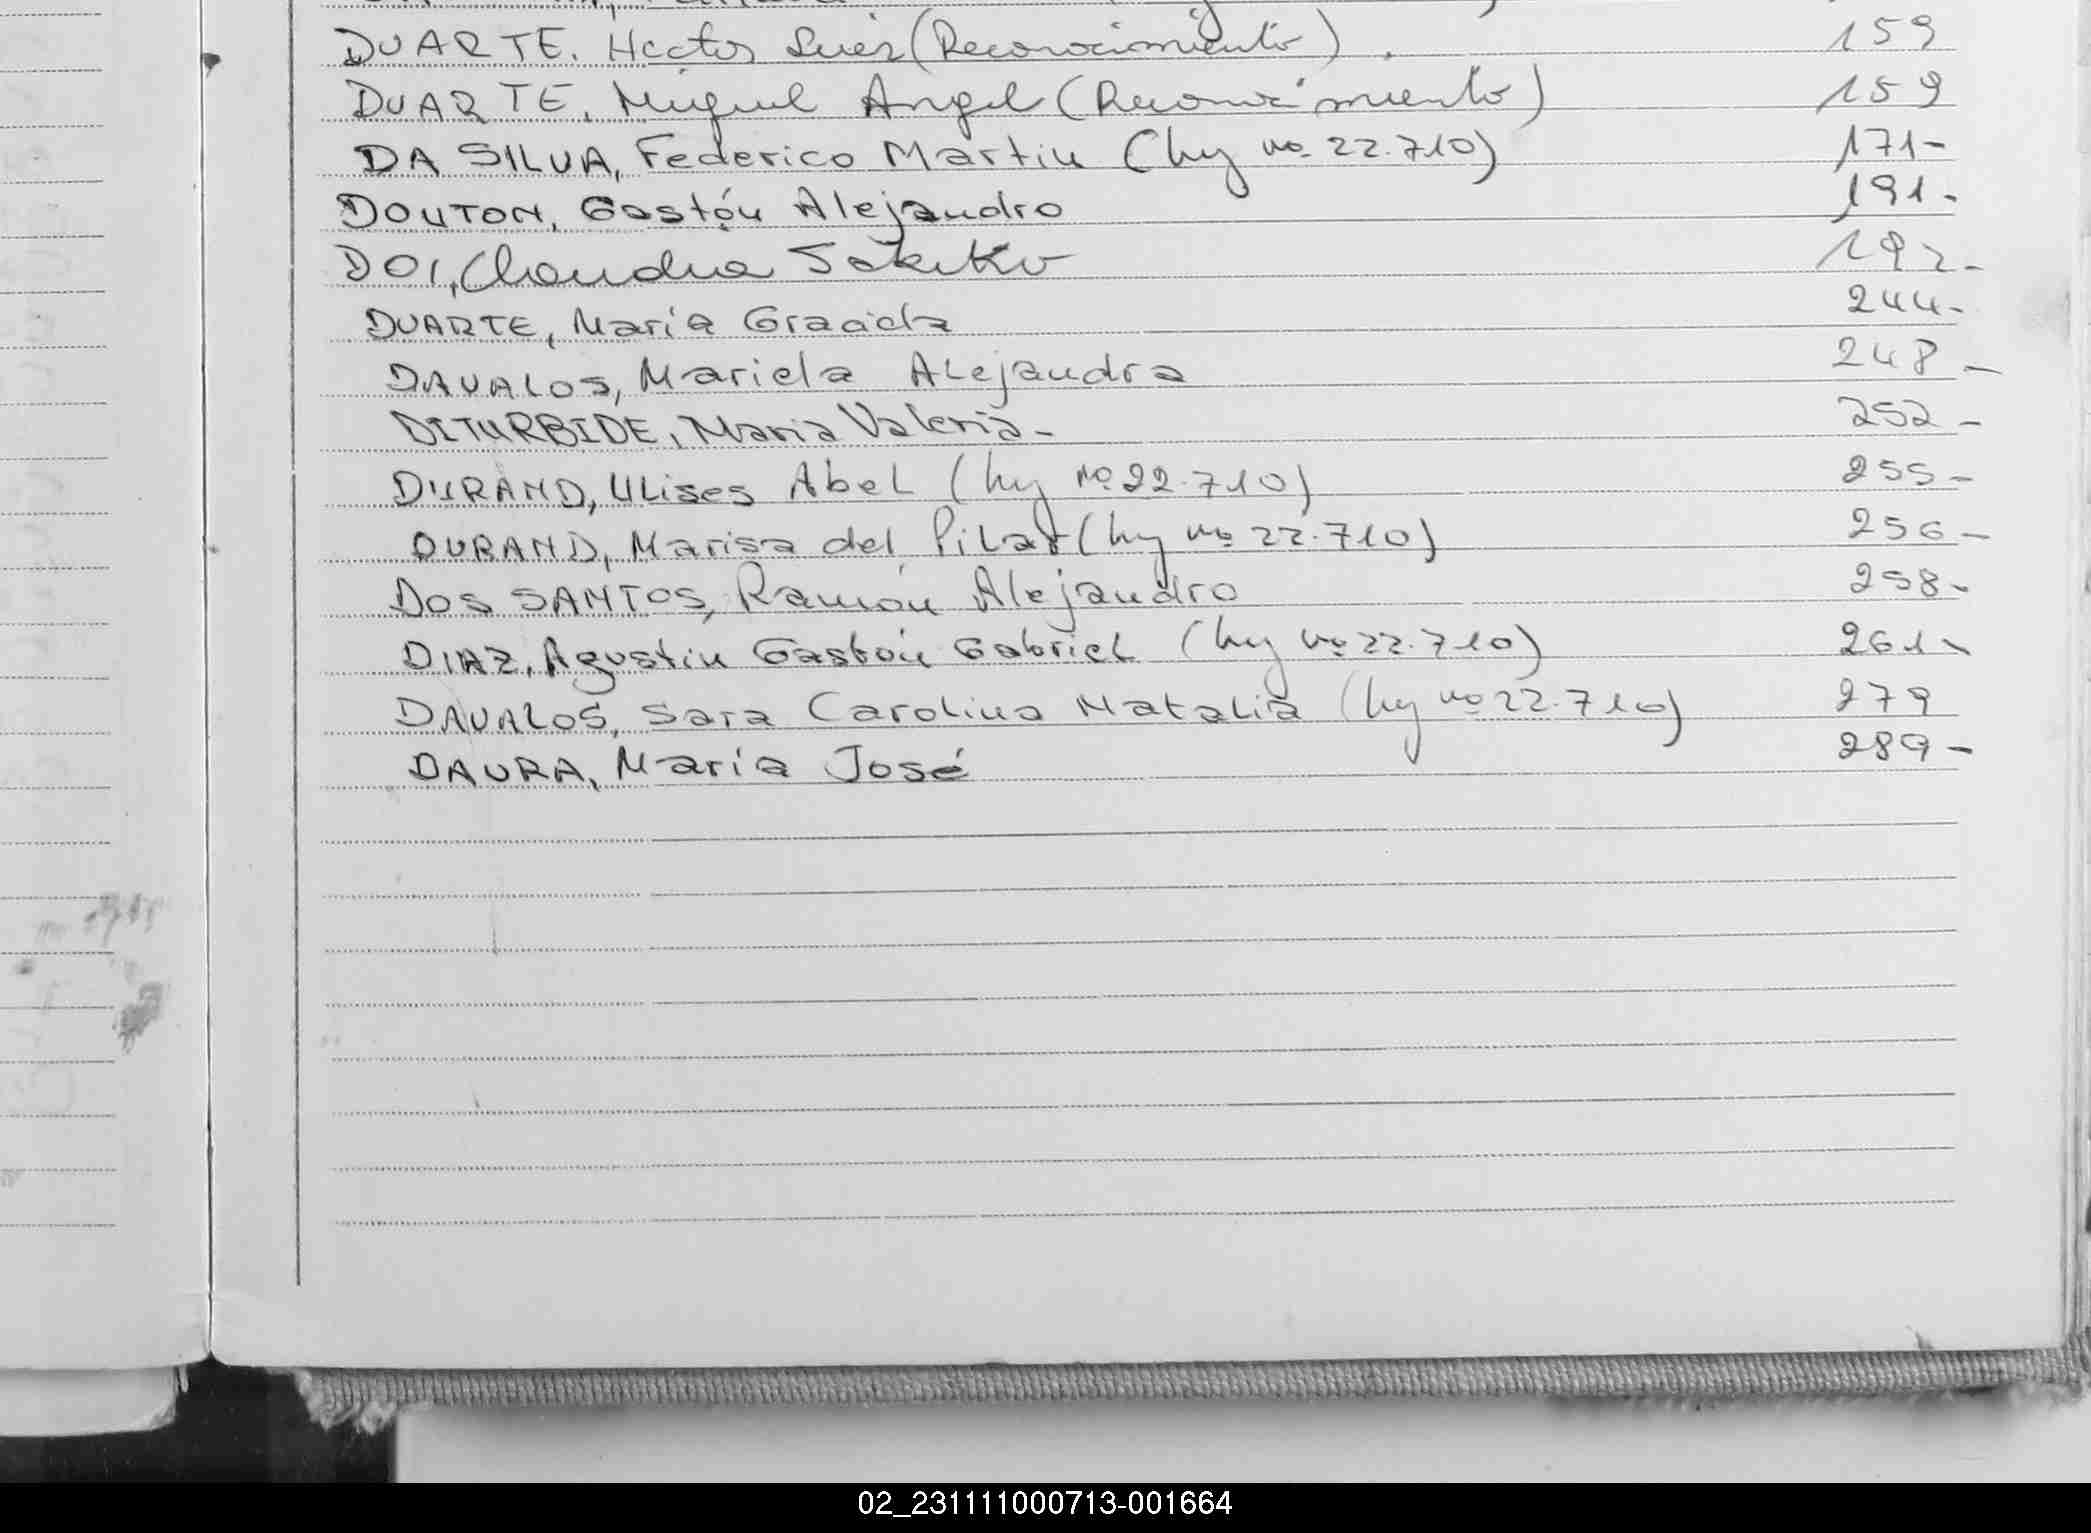 DUARTE, Hector (Reconocimiento) 159
DUARTE, Miguel Angel (Reconocimiento) 159
DA SILVA, Federico Martin (ley no 22.710) 171-
DOUTON, Gastón Alejandro 191-
DOI, Claudia 192-
DUARTE, María Graciela 244-
DAVALOS, Mariela Alejandra 248-
DITURBIDE, Maria Valeria- 252-
DURAND, Ulises Abel (ley no 22.710) 255-
DURAND, Marisa del Pilar (ley no 22.710) 256-
DOS SANTOS, Ramón Alejandro 258-
DIAZ, Agustin Gastón Gabriel (ley no 22.710) 261-
DAVALOS, Sara Carolina Natalia (ley no 22.710) 279
DAURA, María José 289-
02_231111000713-001664